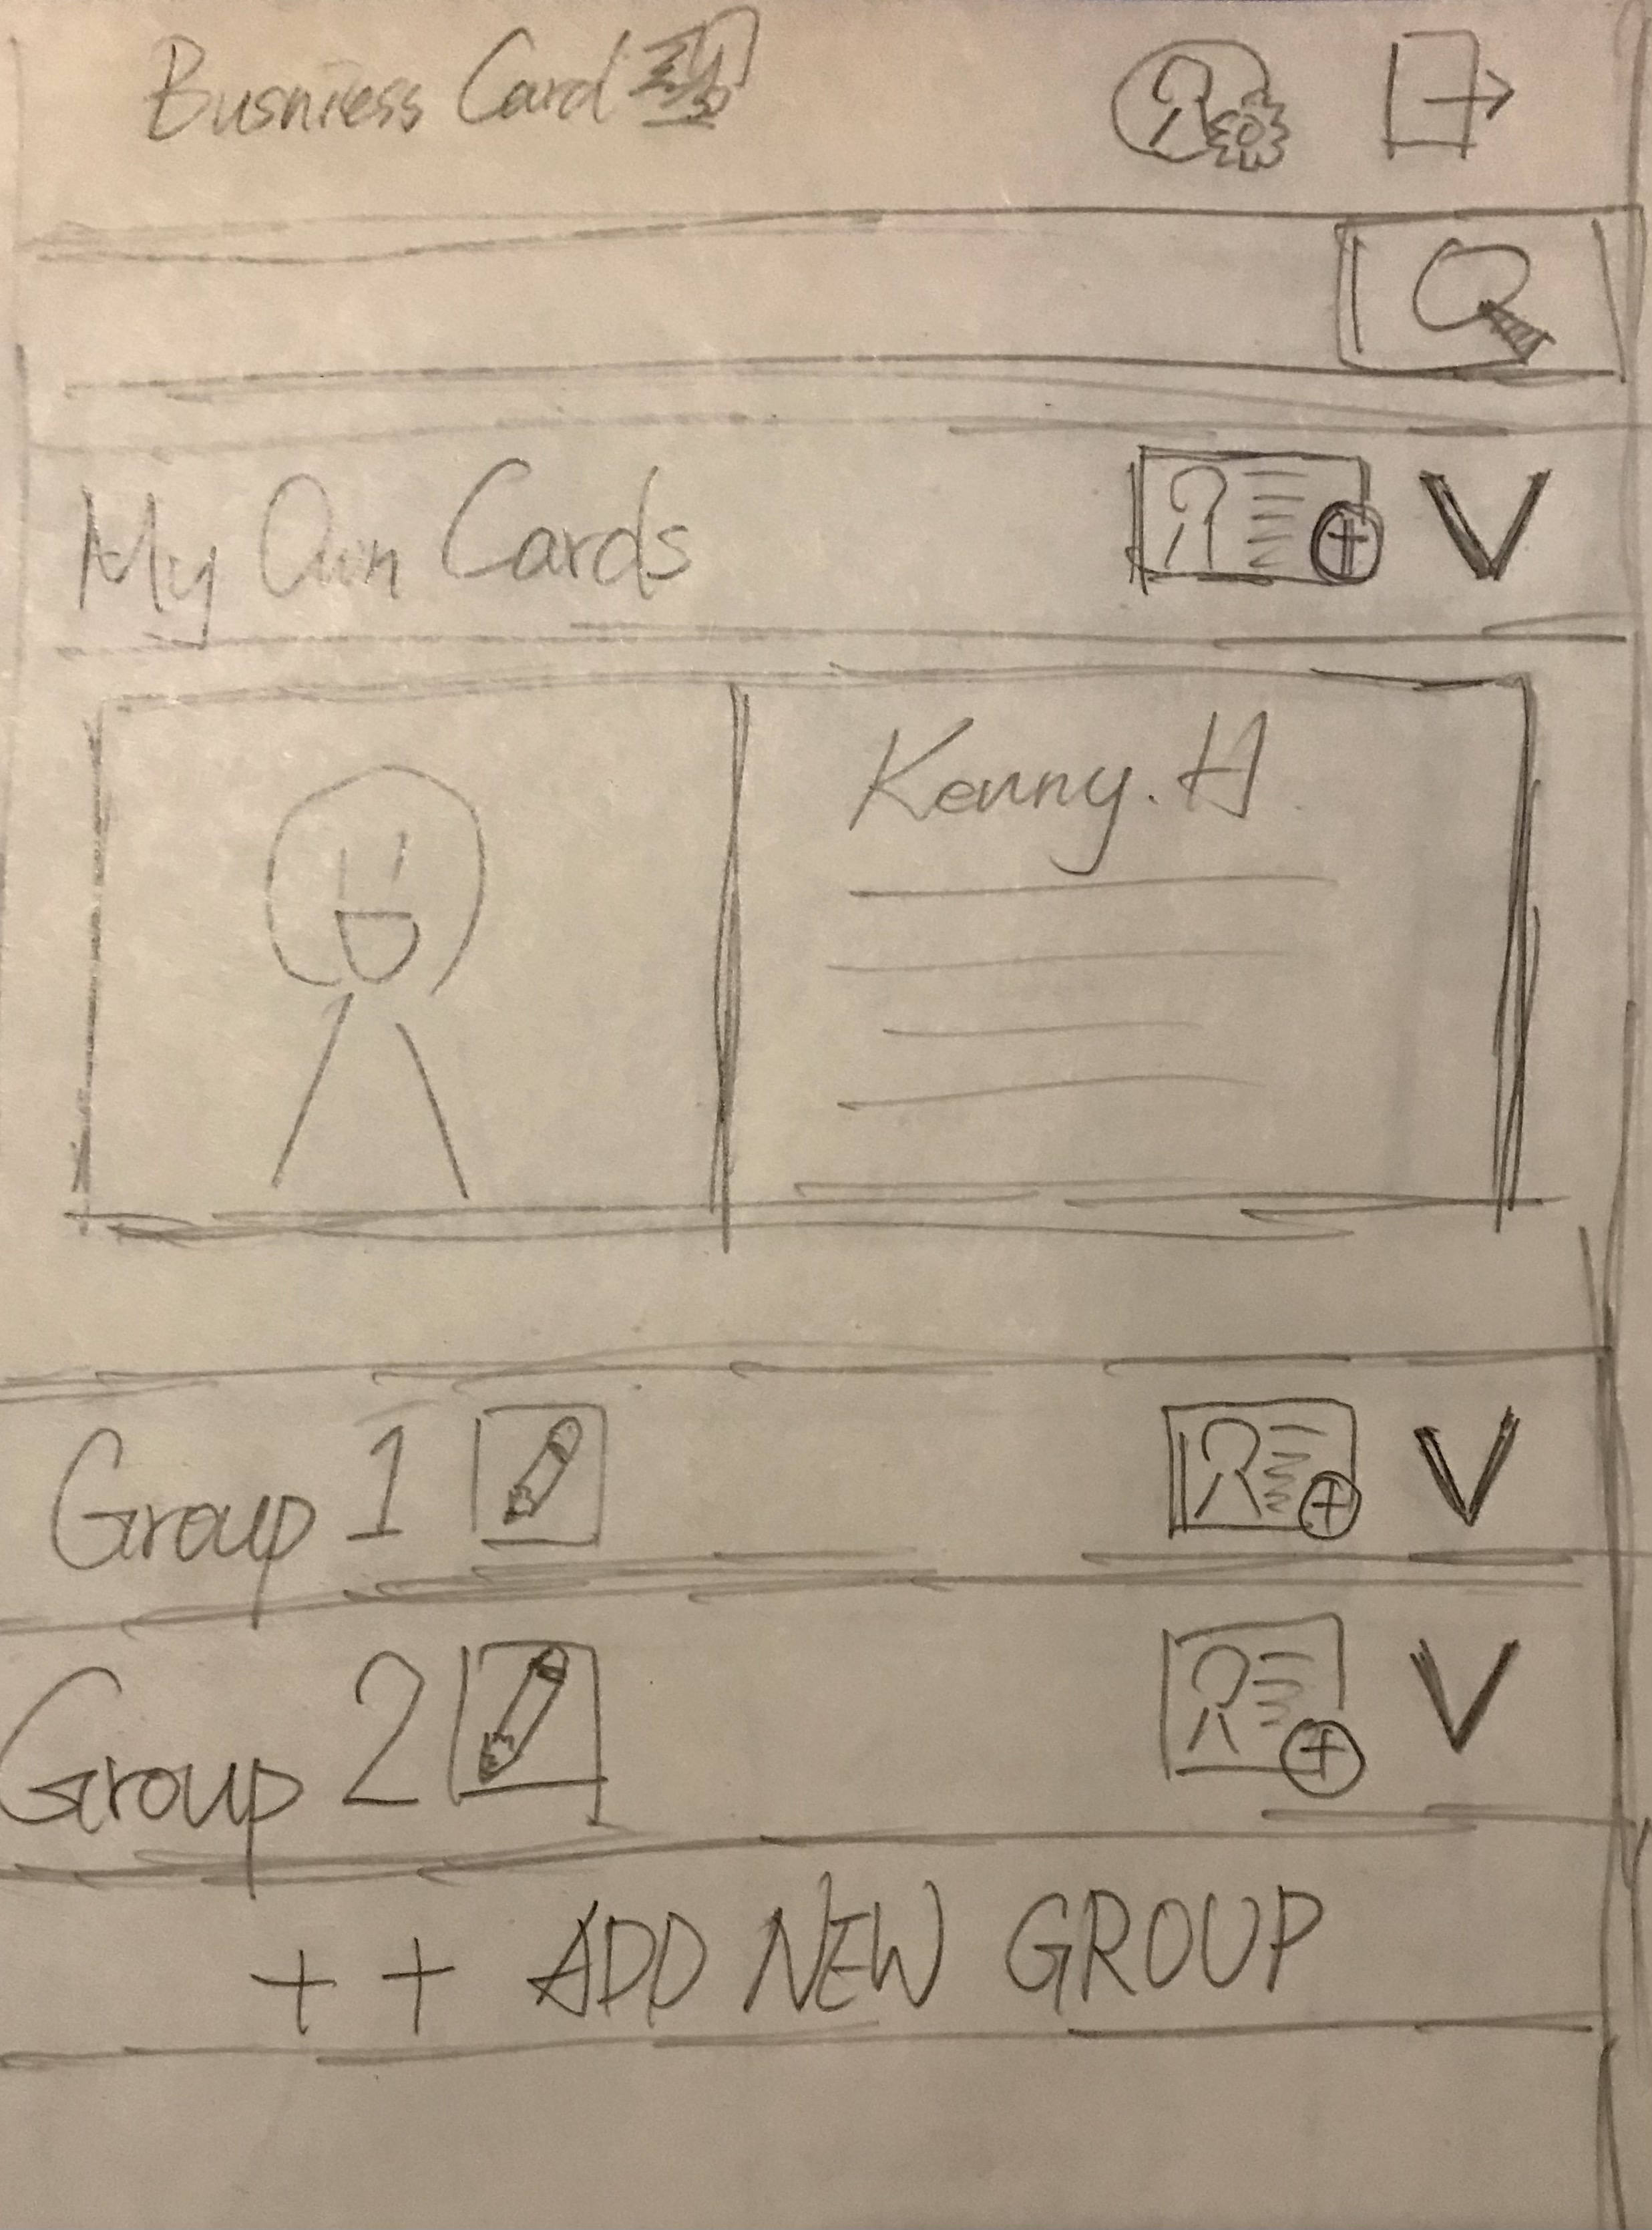 Busniess Card
My Own Cards
Kenny.H
Group 1
Group 2
+ + ADD NEW GROUP